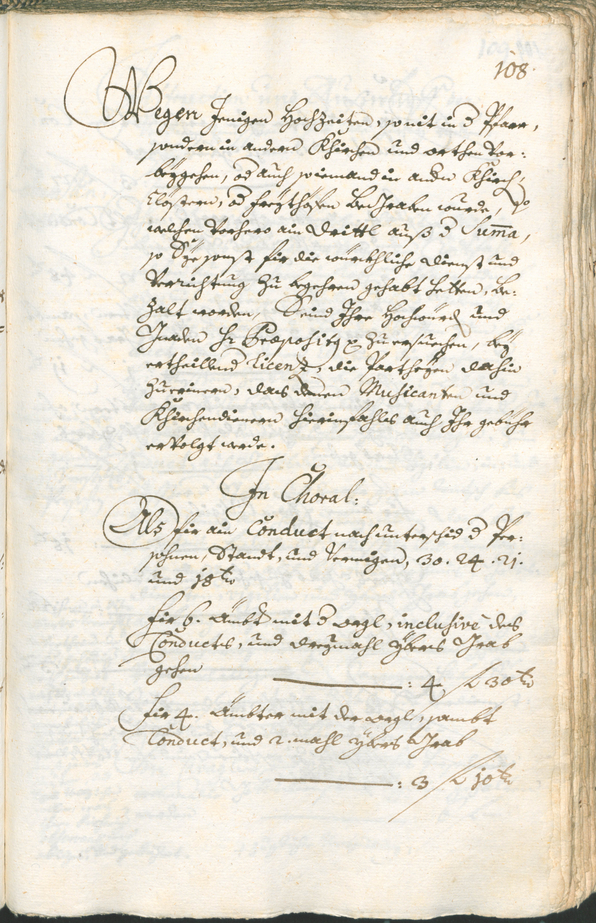 108.
Wegen Jenigen Hochzeiten, so nit in d Pfarr,
sondern in andern Khirchen und orthen vor:
beygehen, od auch so iemand in andn Khirch,
Clöstern, od freythöfen Begraben wurde,
welchen vorhero ain Drittl auß d Summa,
so Sye sonst für die würkhliche Dienst und
Verrichtung zu begehren gehabt hetten, be:
zalt worden, Seind Ihre Hochwürd und
Gnaden Hr Præpositg zu ersuechen, bey
ertheillend Licenz, die Partheyen dahin
zuerinern, das denen Musicanten und
Khirchendienern hierinfahls auch Ihr gebühr
ervolgt werde.
In Choral:
Als für ain Conduct nach unterschid d Per:
sohnen, Standt, und Vermögen, 30. 24. 21.
und 18 kr
für 6. Ämbt mit d Orgl, inclusivè des
Conducts, und dreymahl ybers Grab
gehen
: 4 f 30 kr
für 4. Ämbter mit der Orgl, sambt
Conduct, und 2. mahl ybers Grab
: 3 f 10 kr